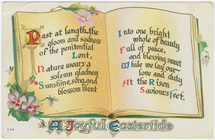 Past at length, the
gloom and sadness
of the penitential
Lent,
Nature wears a
solemn gladness
Sunshine, song and
blossom blent
Into one bright
whole of beauty
Full of peace,
and blessing meet
While we lay our
love and duty
At the Risen
Saviour's feet.
A Joyful Eastertide